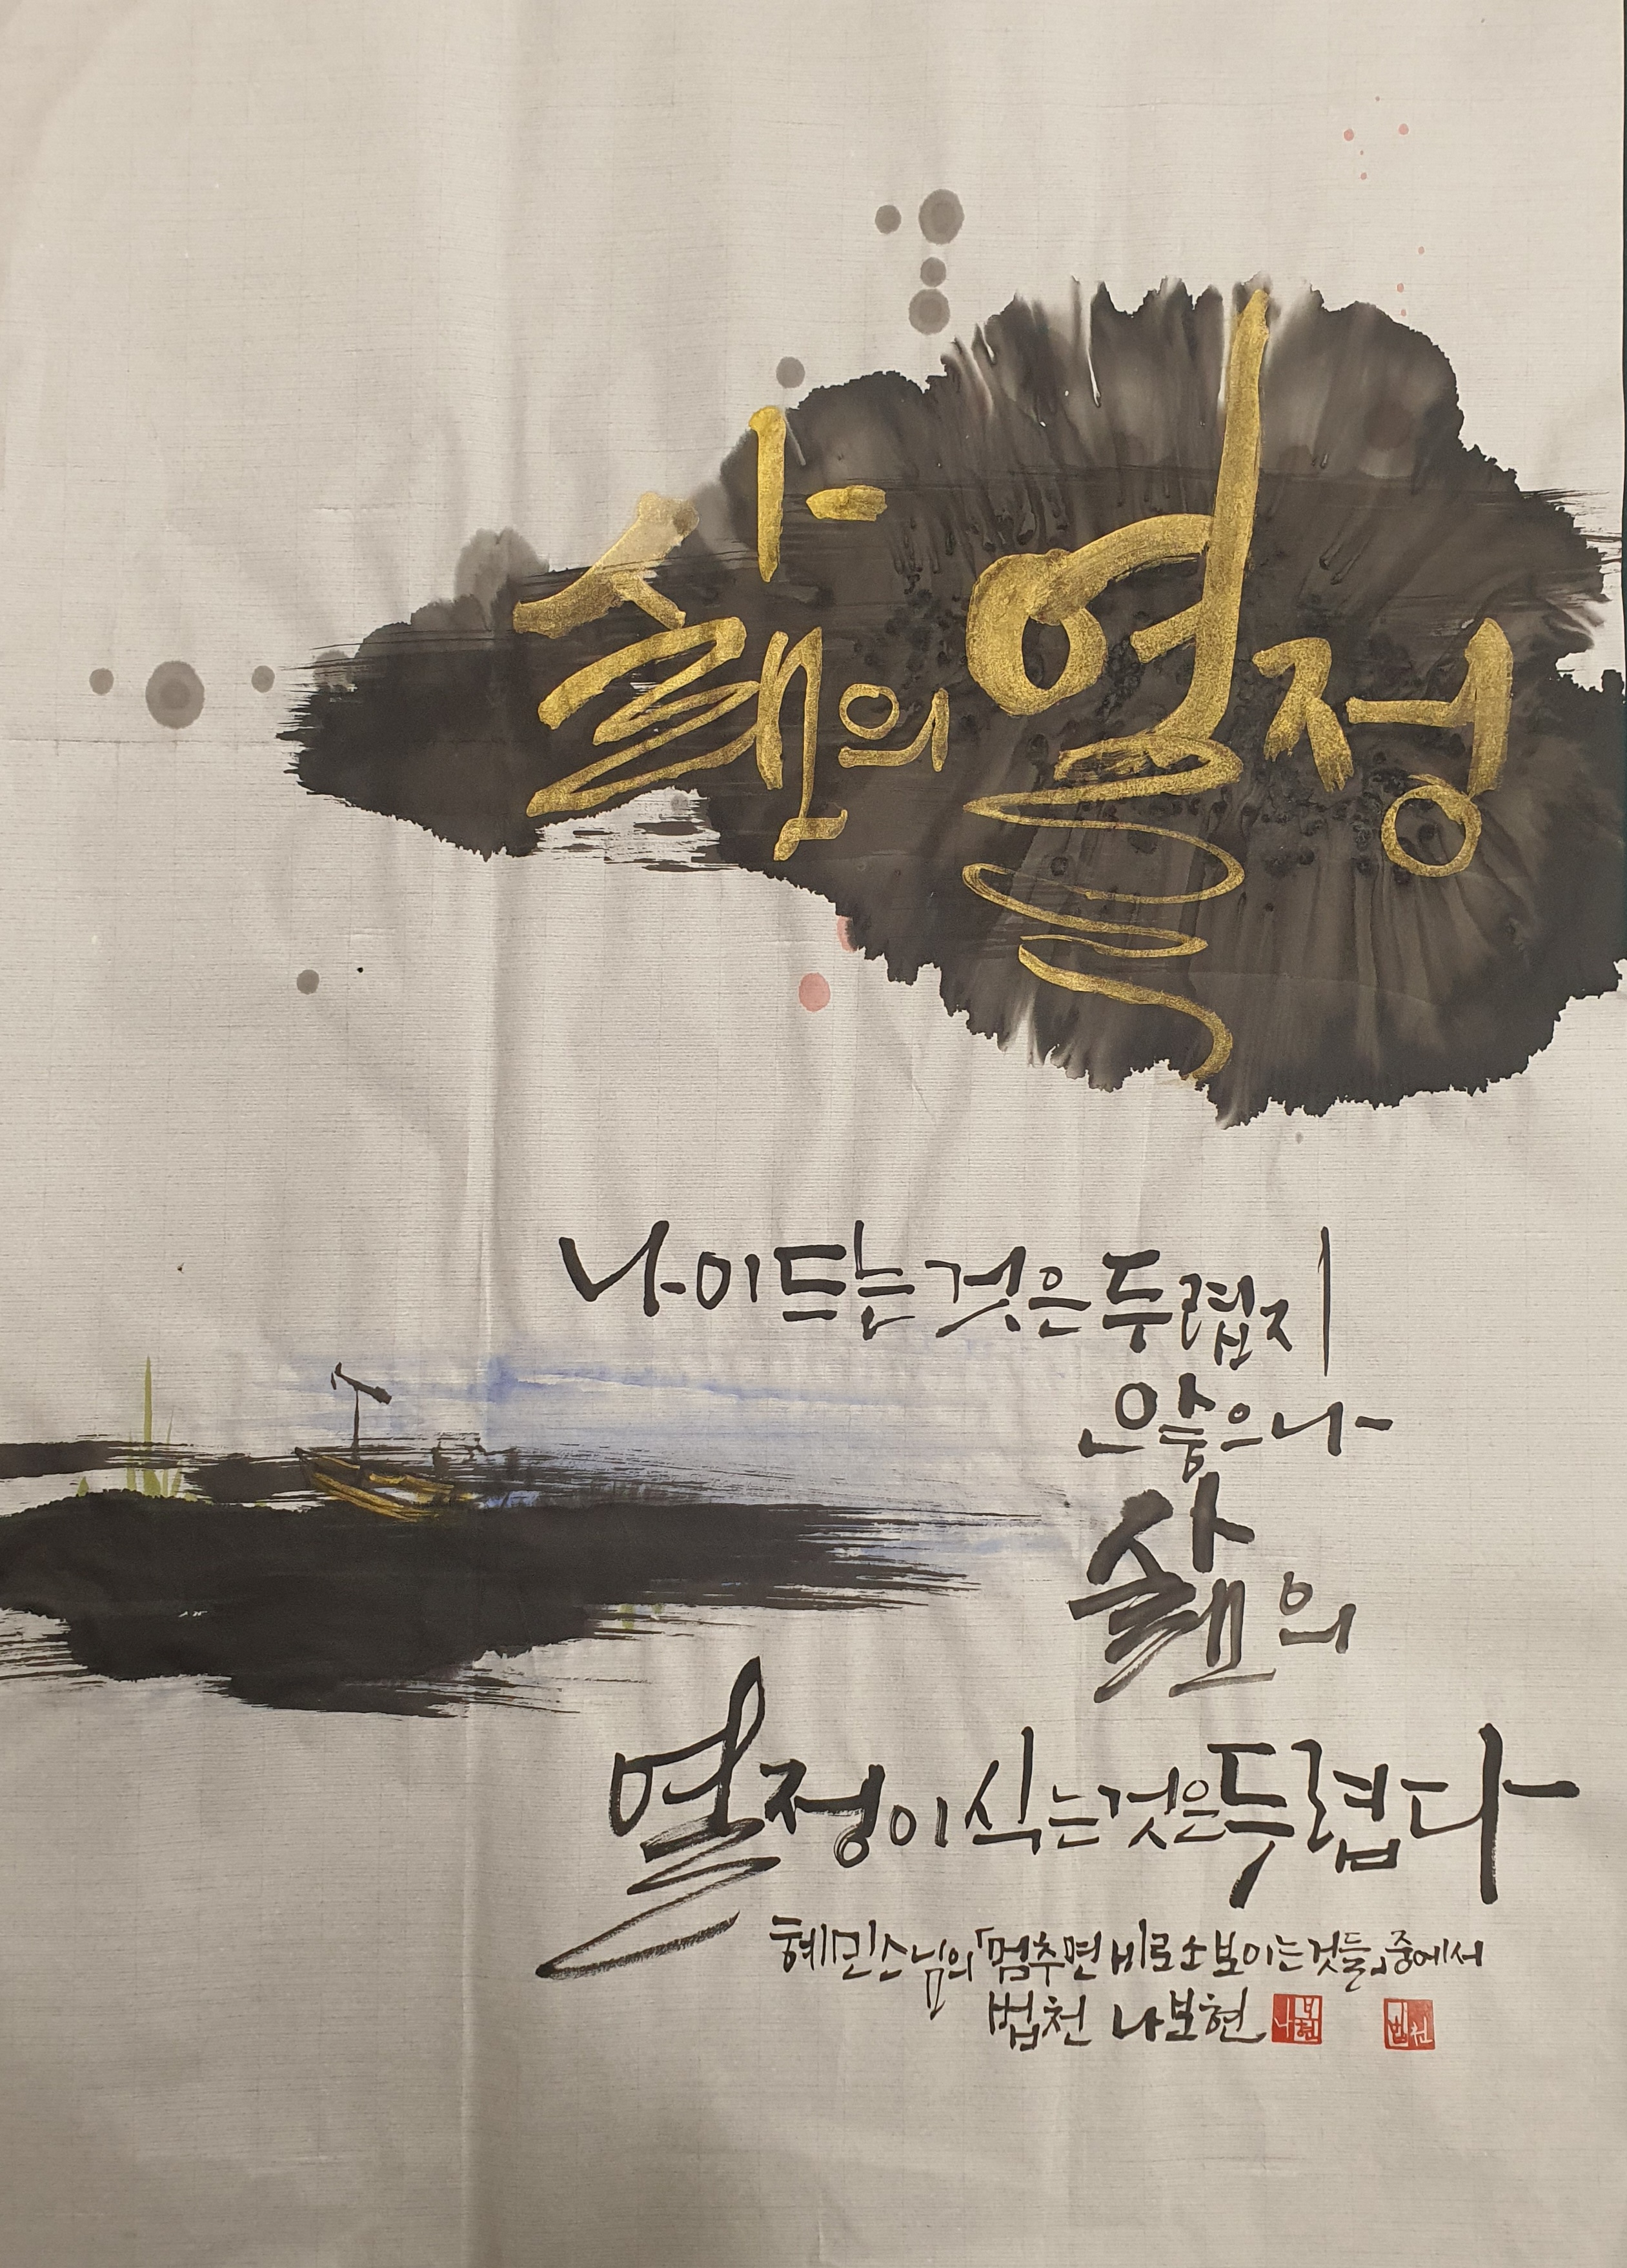 삶의 열정
나이드는 것은 두렵지
않으나
삶의
열정이 식는 것은 두렵다
혜민스님의 「멈추면 비로소 보이는 것들」 중에서
법천 나보현
나보현
법천